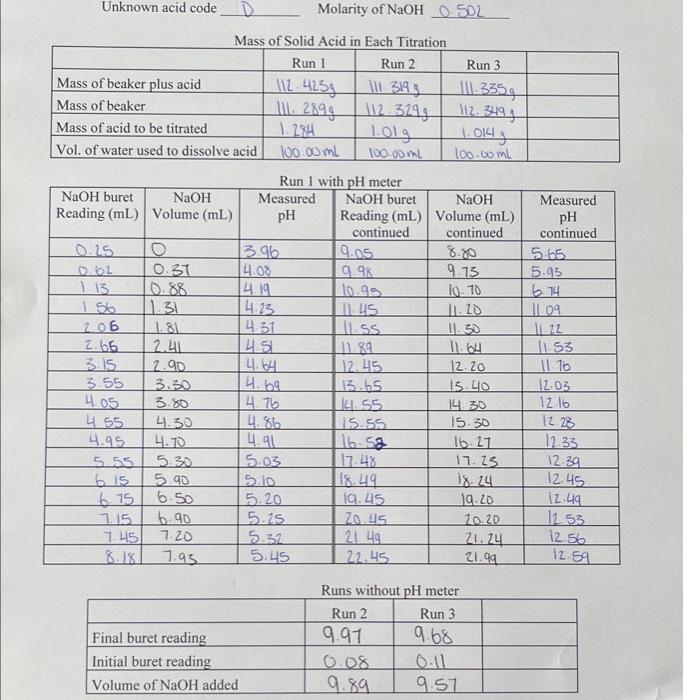 Unknown acid code D Molarity of NaOH 0.502
Mass of Solid Acid in Each Titration
Run 1 Run 2 Run 3
Mass of beaker plus acid 112.423g 111.319g 111.335g
Mass of beaker 111.289g 112.329g 112.349g
Mass of acid to be titrated 1.284 1.01g 1.014g
Vol. of water used to dissolve acid 100.00mL 100.00mL 100.00mL
Run 1 with pH meter
NaOH buret NaOH Measured NaOH buret NaOH Measured
Reading (mL) Volume (mL) pH Reading (mL) Volume (mL) pH
continued continued continued
0.25 0 3.96 9.05 8.80 5.65
0.62 0.37 4.08 9.98 9.73 5.93
1.13 0.88 4.19 10.95 10.70 6.74
1.56 1.31 4.23 11.45 11.20 11.09
2.06 1.81 4.37 11.55 11.30 11.22
2.66 2.41 4.51 11.89 11.64 11.53
3.15 2.90 4.64 12.45 12.20 11.76
3.55 3.30 4.69 13.65 13.40 12.03
4.05 3.80 4.76 14.55 14.30 12.16
4.55 4.30 4.86 15.55 15.30 12.23
4.95 4.70 4.91 16.52 16.27 12.33
5.55 5.30 5.03 17.48 17.23 12.39
6.15 5.90 5.10 18.49 18.24 12.45
6.75 6.50 5.20 19.45 19.20 12.49
7.15 6.90 5.25 20.45 20.20 12.53
7.45 7.20 5.32 21.49 21.24 12.56
8.18 7.93 5.45 22.45 21.99 12.59
Runs without pH meter
Run 2 Run 3
Final buret reading 9.97 9.68
Initial buret reading 0.08 0.11
Volume of NaOH added 9.89 9.57